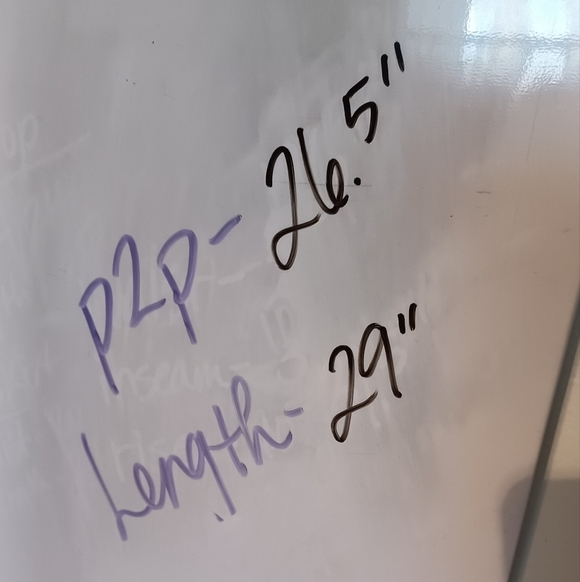 p2p- 26.5"
Length- 29"